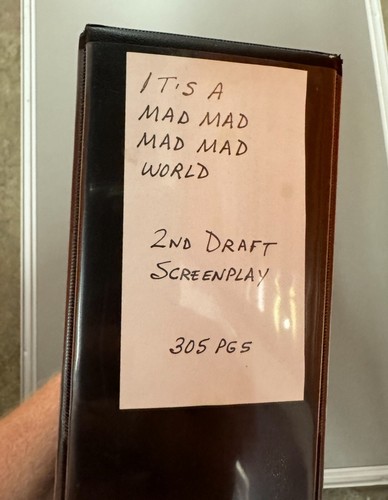 IT'S A
MAD MAD
MAD MAD
WORLD
2ND DRAFT
SCREENPLAY
305 PGS